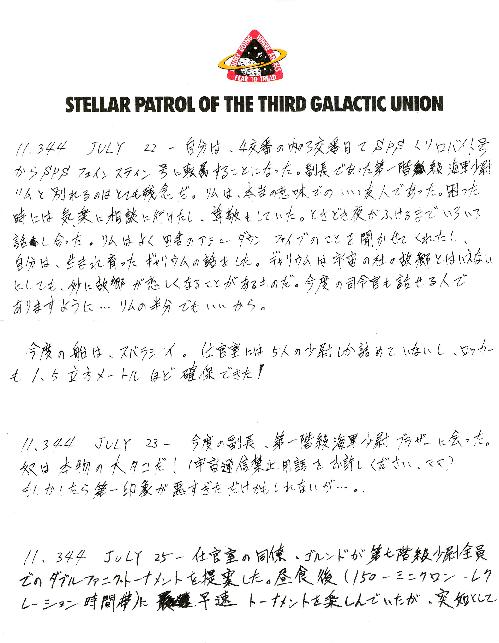 FEAR TO TREAD
STELLAR PATROL OF THE THIRD GALACTIC UNION
11,344 JULY 22 - 自分は、4交番の中の3交番目でSPS
からSPSファインスティン号に転属することになった。副長であった第一階級海軍少尉
リムと別れるのはとても残念だ。リムは、本当の意味でのいい友人であった。困った
時には気楽に相談にのれたし、尊敬もしていた。ときどき夜がふけるまでいろいろ
話し合った。リムはよく のことを聞かせてくれたし、
自分は、生まれ育ったギャリウムの話をした。ギャリウムは宇宙の
にしても、妙に故郷が恋しくなることがあるものだ。今度の司令官も話せる人で
ありますように… リムの半分でもいいから。
今度の船は、スバラシイ。仕官室には5人の少尉しか詰めていないし、ロッカー
も1.5立方メートルほど確保できた!
11,344 JULY 23 - 今度の副長、第一階級海軍少尉ブラザーに会った。
奴は本物の大タコだ!(宇宙通信禁止用語をお許しください、)
もしかしたら第一印象が悪すぎただけかもしれないが…。
11,344 JULY 25 - 仕官室の同僚、ゴルンドが第七階級少尉全員
でのダブルファニクトーナメントを提案した。昼食後(150-ミニクロン-レク
レーション時間帯)に早速トーナメントを楽しんでいたが、突如として